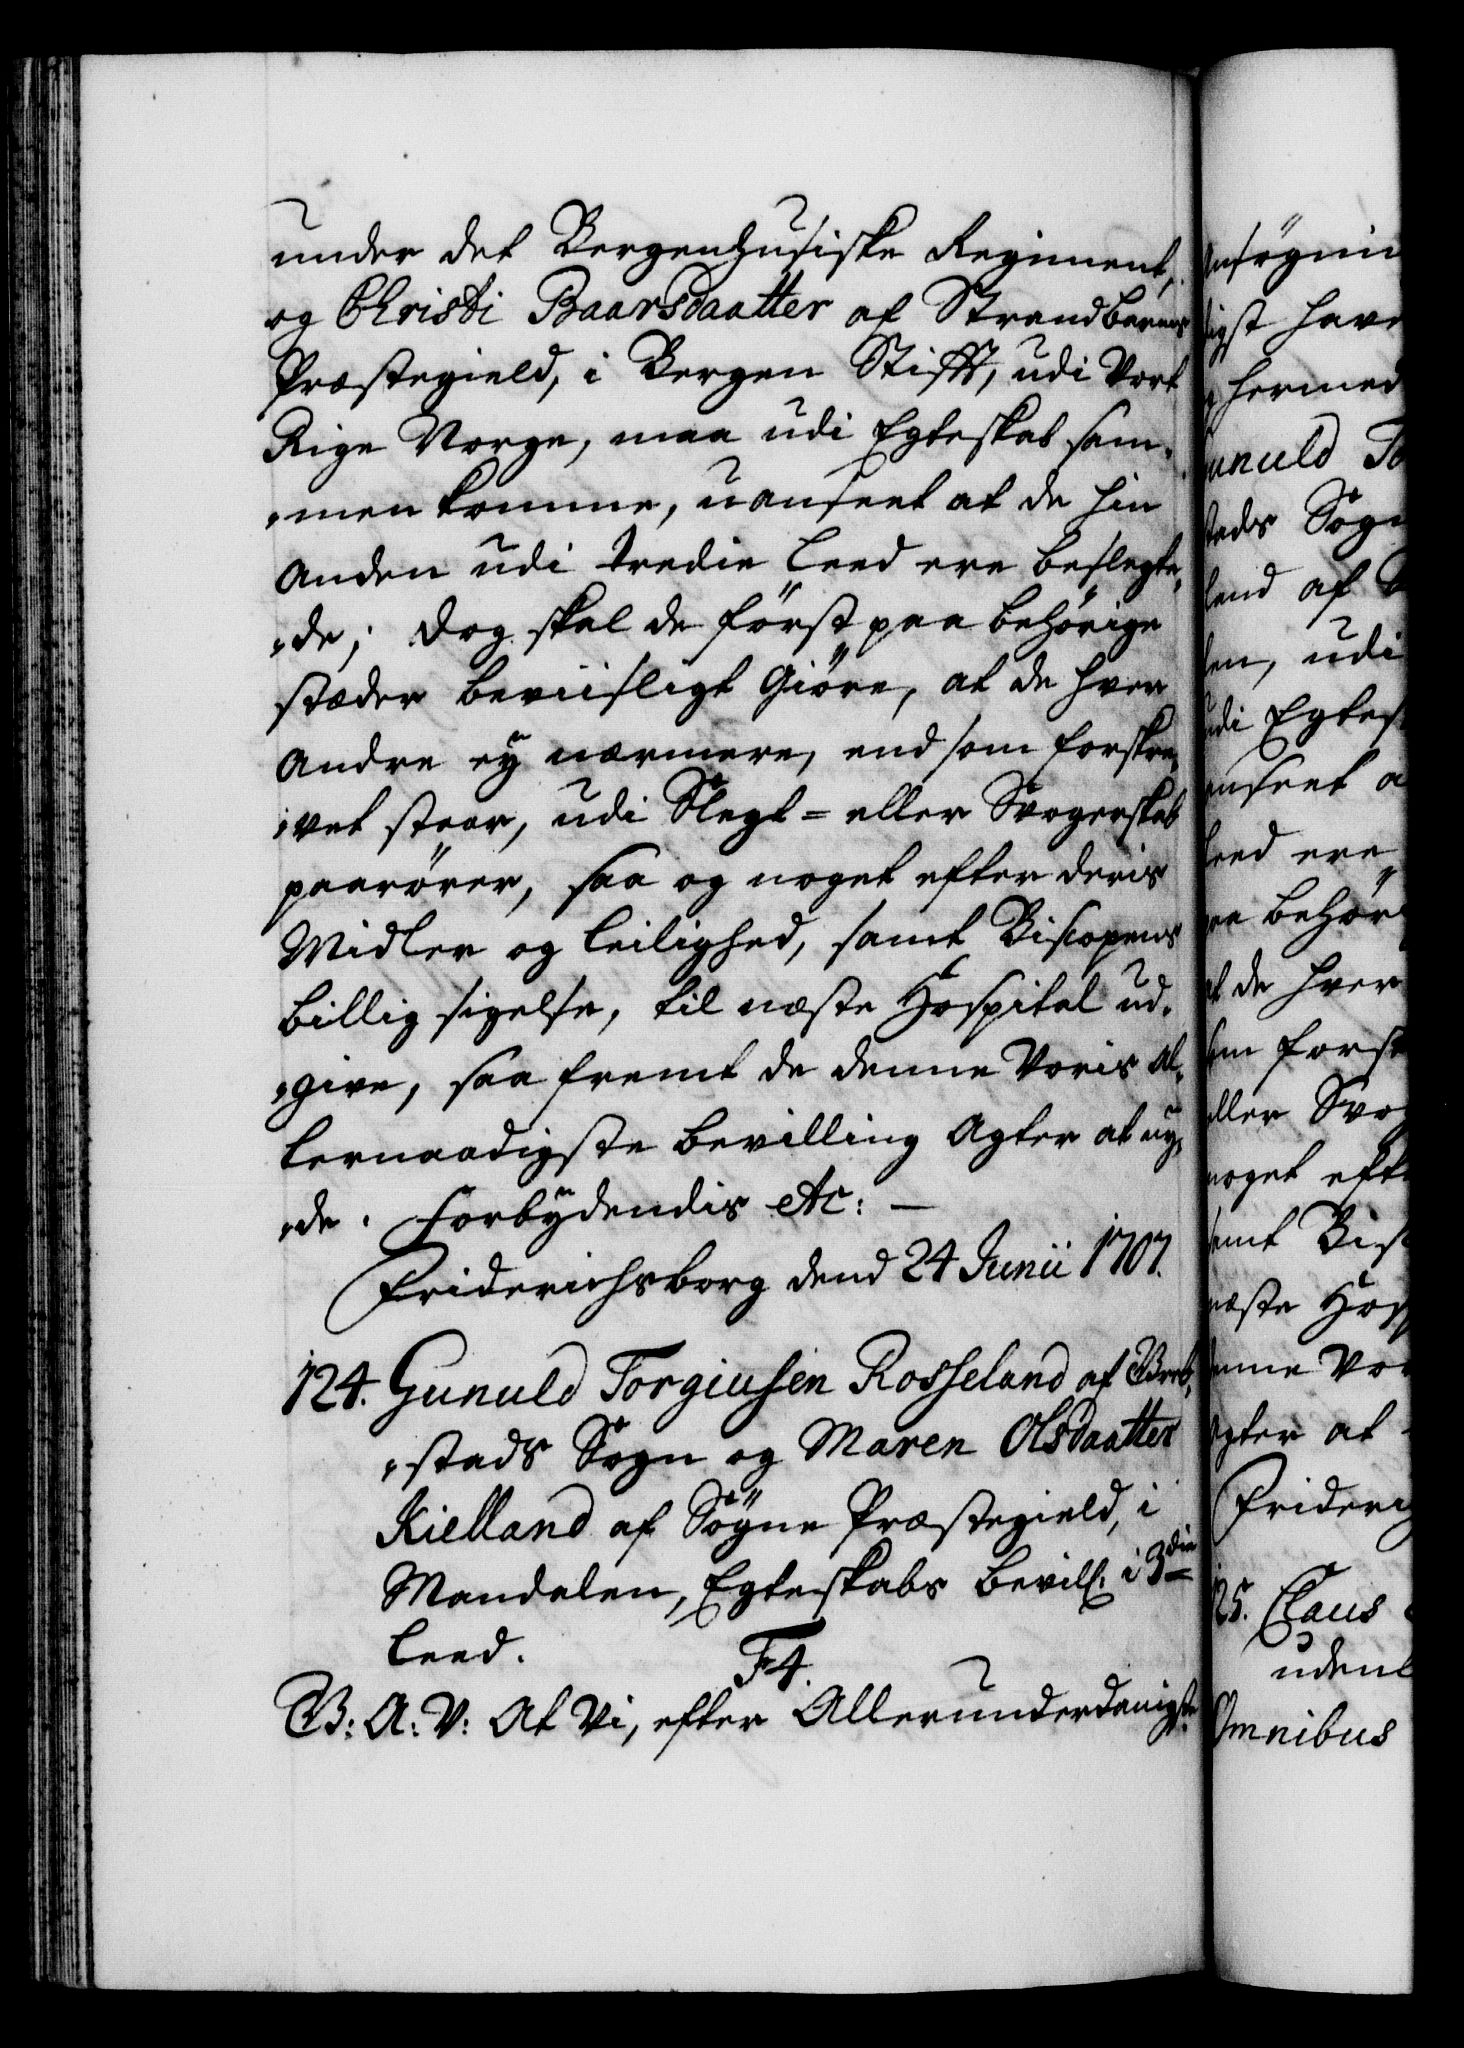 under det Bergenhusiske Regiment,
og Christi Baarsdaatter af Strandbarms
Præstegield, i Bergen Stifft, udi Vort
Rige Norge, maa udi Egteskab sam-
men komme, uanseet at de hin
Anden udi tredie Leed ere beslegte-
de; Dog skal de först paa behörige
stæder beviisligt Giöre, at de hver
Andre eÿ nærmere, end som forskre-
vet staar, udi Slegt- eller Svogerskab
paarörer, saa og noget efter deris
Midler og leilighed, samt Biscopens
billig sigelse, til næste Hospital ud-
give, saa fremt de denne Voris Al-
lernaadigste bevilling Agter at nÿ-
de. Forbÿdendis etc: —
Friderichsborg dend 24 Junii 1707.
124. Gunuld Torgiusen Rosseland af Breb-
stads Sogn og Maren Olsdaatter
Kielland af Sögne Præstegield, i
Mandalen, Egteskabs bevill: i 3die
Leed.
F4.
G: A: V: At Vi, efter Allerunderdanigste
Ansögnin
ligst have
hermed
unuld To
stads Sogn
land af
len, udi
udi Egtes
anseet a
Leed ere
paa behör
at de hver
som forsk
eller Svog
noget eft
samt Bis
næste Hosp
denne Vor
Agter at
Friderig
125. Claus
uden
Omnibus